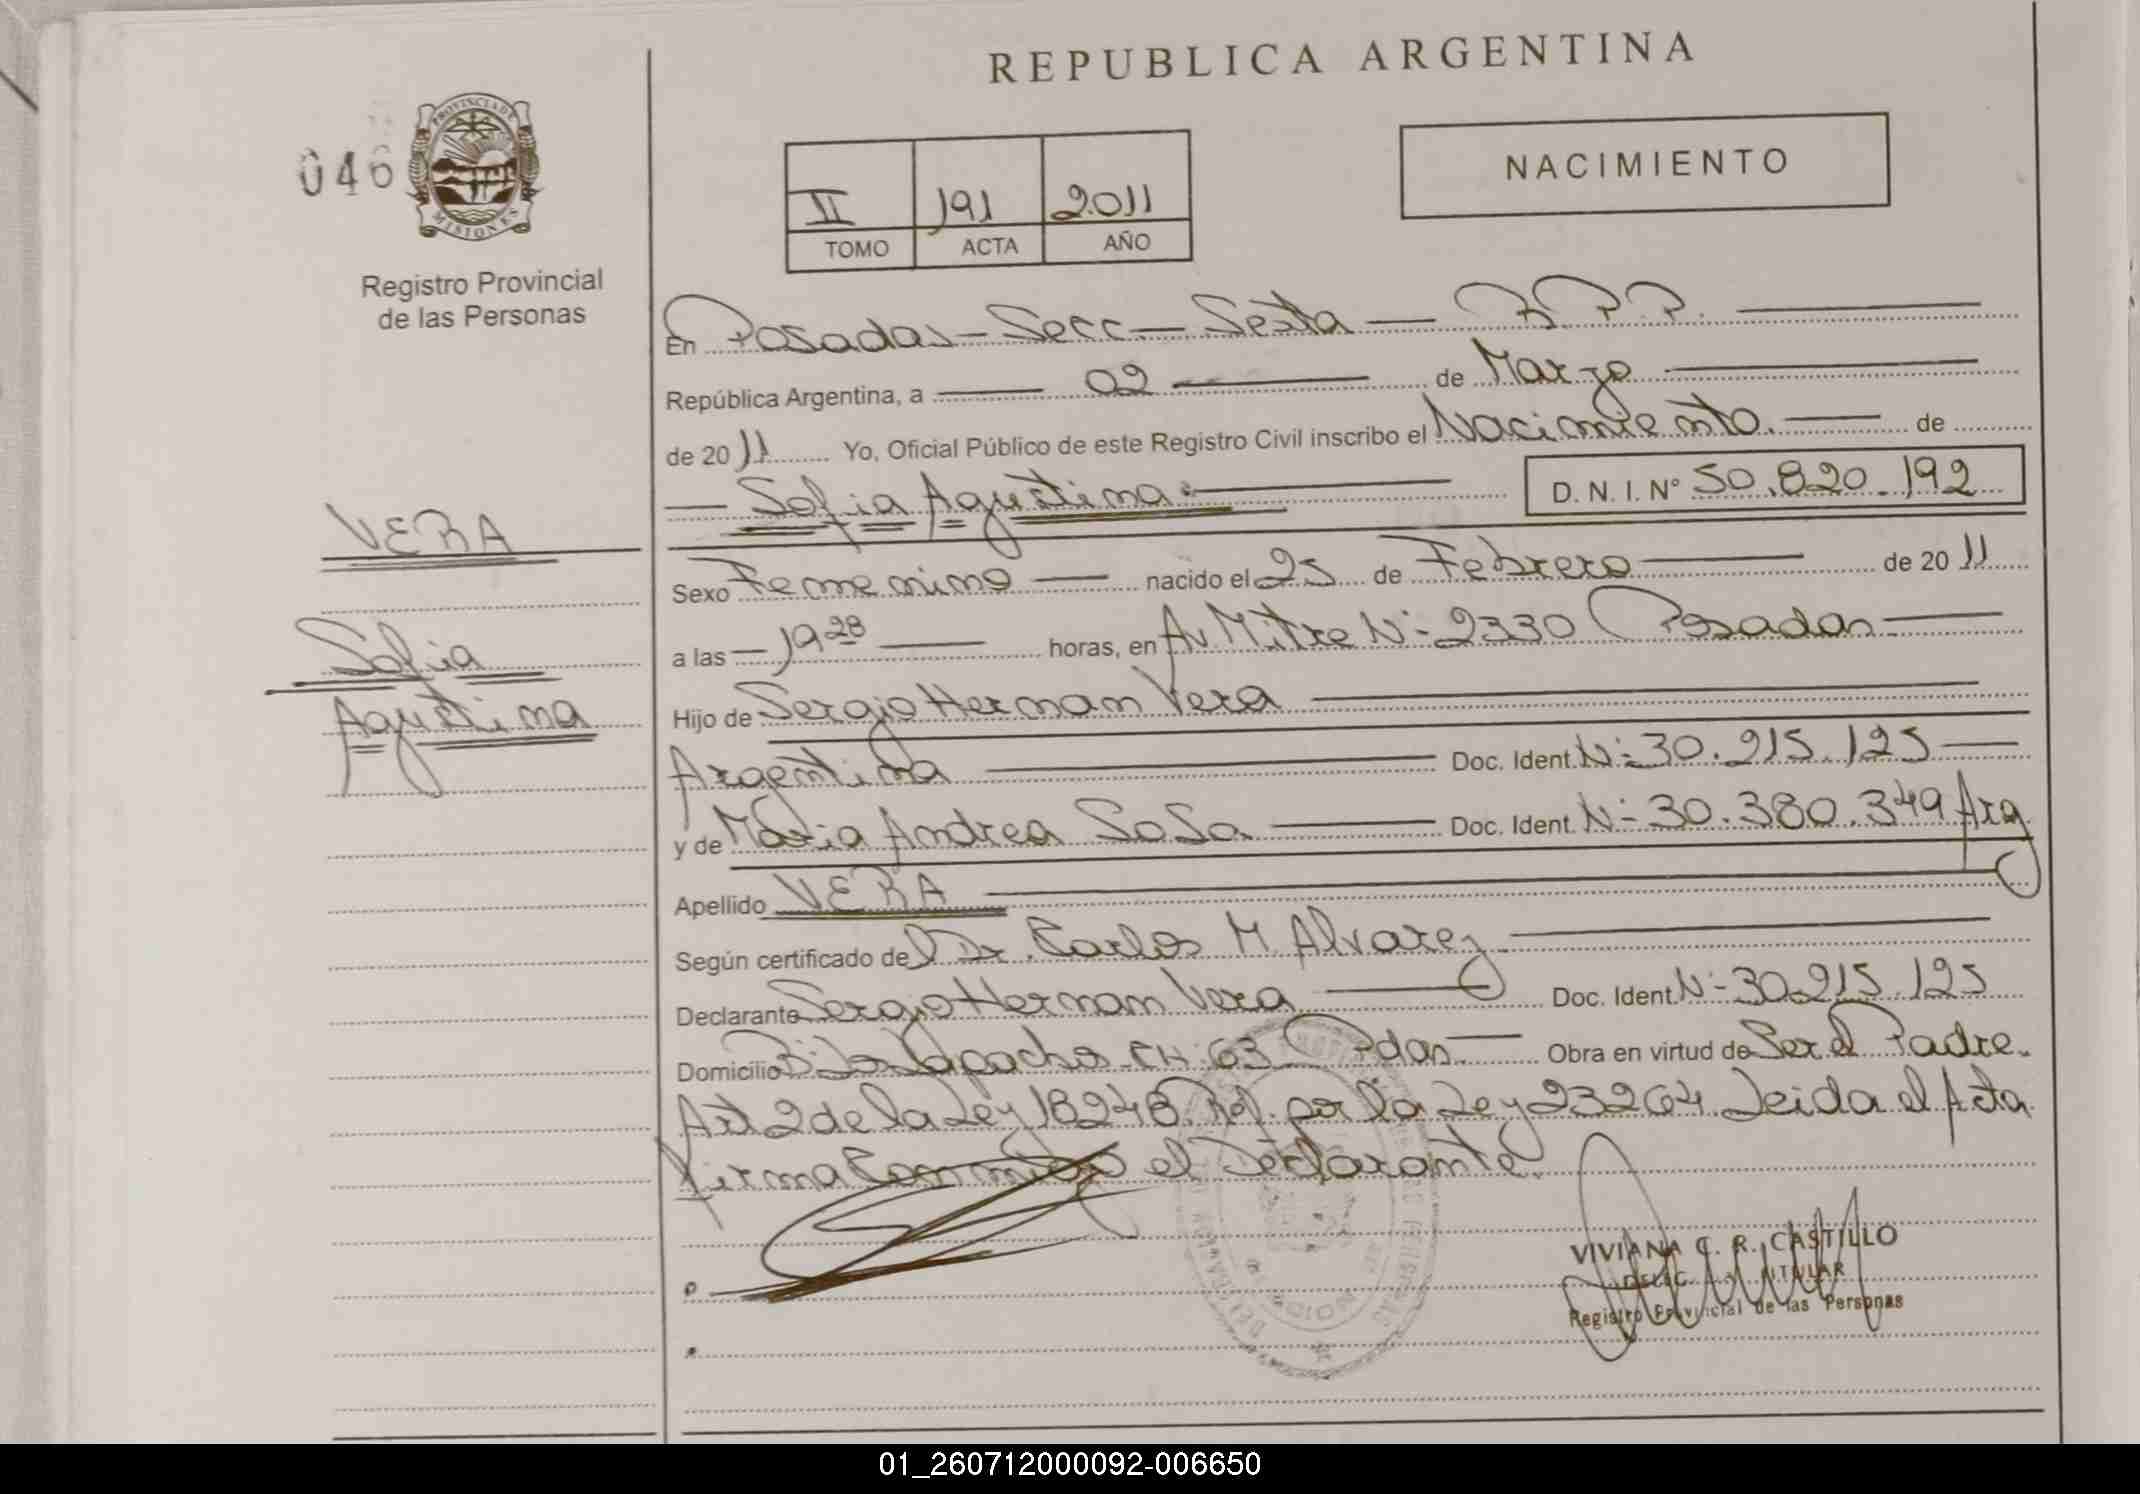 REPUBLICA ARGENTINA
046
PROVINCIA DE
MISIONES
Registro Provincial
de las Personas
II 191 2.011
TOMO ACTA AÑO
NACIMIENTO
En Posadas - Secc - Sexta - R.P.P.
República Argentina, a 02 de Marzo
de 2011 Yo, Oficial Público de este Registro Civil inscribo el Nacimiento. de
Sofia Agustina. D. N. I. N° 50.820.192
VERA
Sofia
Agustina
Sexo Femenino nacido el 25 de Febrero de 2011
a las 19 28 horas, en Av. Mitre Nº 2330 Posadas
Hijo de Sergio Hernan Vera
Argentina Doc. Ident. Nº 30.215.125
y de Maria Andrea Sosa Doc. Ident. Nº 30.380.349 Arg
Apellido VERA
Según certificado del Dr. Carlos M. Alvarez
Declarante Sergio Hernan Vera Doc. Ident. Nº 30.215.125
Domicilio Bº Los Lapachos CH: 63 Pdas. Obra en virtud de Ser el Padre.
Art 2 de la Ley 18248. Ref. por la Ley 23264. Leida el Acta
firma Conmigo el Declarante.
VIVIANA C. R. CASTILLO
TITULAR
Registro Provincial de las Personas
01_260712000092-006650